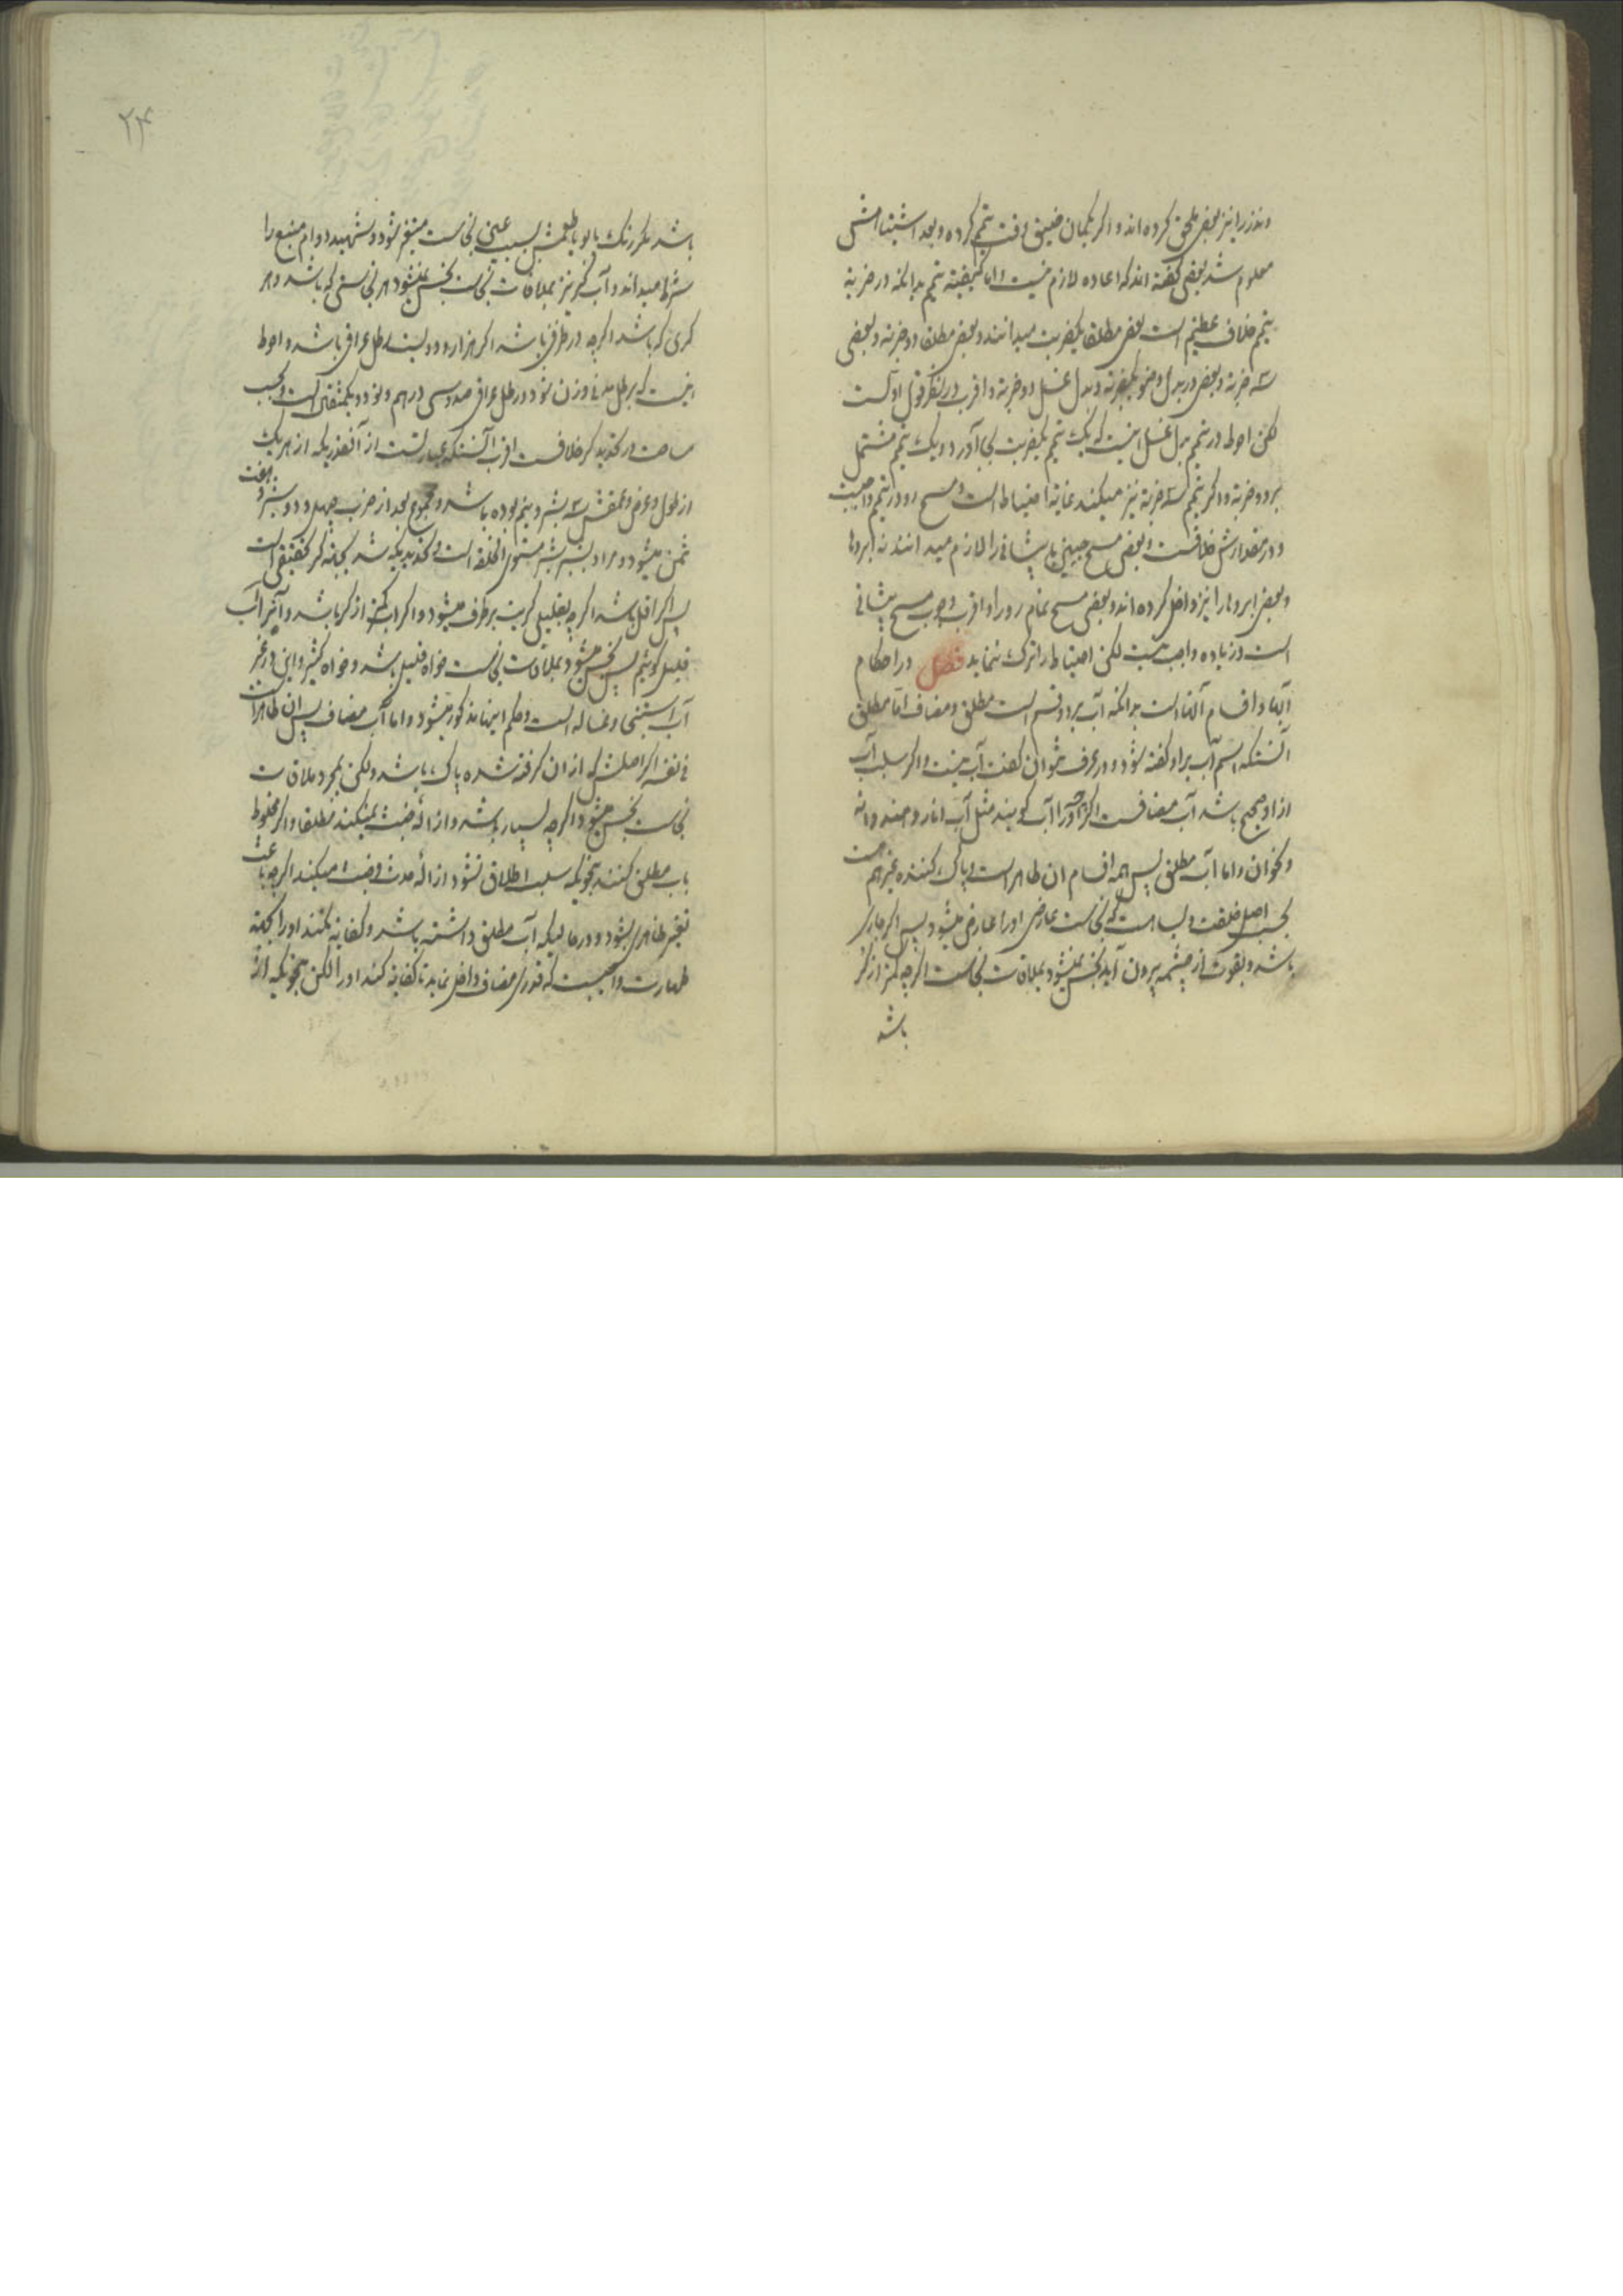 ونذر را نیز بعضی ملحق کرده اند و اگر بگمان ضیق وقت تیمم کرده و بعد اشتباهش
معلوم شد بعضی گفته اند که اعاده لازم نیست و اما کیفیته تیمم بدانکه در ضربة
تیمم خلاف عظیم است بعضی مطلقا یکضربت میدانند و بعضی مطلقا دو ضربة و بعضی
سه ضربة و بعضی در بدل وضو یکضربة و بدل غسل دو ضربة و اقرب در نظر قول اولست
لکن احوط در تیمم بدل غسل اینست که یک تیمم یکضربت بجا آورد و یک تیمم مشتمل
بر دو ضربة و اگر تیمم سه ضربة نیز میکند غایة احتیاط است و مسح رو در تیمم واجبست
و در مقدارش خلافست و بعضی مسح جبین یا پیشانی را لازم میدانند نه ابروها
و بعضی ابروها را نیز داخل کرده اند و بعضی مسح تمام رو را و اقرب وجوب مسح پیشانی
است و زیاده واجب نیست لکن احتیاط را ترک ننماید فصل در احکام
آبها و اقسام آنها است بدانکه آب بر دو قسم است مطلق و مضاف اما مطلق
آنستکه اسم آب براو گفته شود و در عرف نتوان گفت آب نیست و اگر سلب آب
از او صحیح باشد آب مضافست اگرچه او را آب گویند مثل آب انار و هندوانه
و نحو آن و اما آب مطلق پس همه اقسام ان طاهر است و پاک کننده غیر هم هست
بحسب اصل خلقت و بسا هست که نجاست عارضی او را عارض میشود پس اگر جاری
باشد و بقوت از چشمه بیرون آید نجس نمیشود بملاقات نجاست اگرچه کمتر از کر
باشد
۲۴
باشد مگر رنگ یا بو یا طعمش بسبب عین نجاست متغیر شود و شهید دوام منبع را
شرط میداند و آب کر نیز بملاقات نجاست نجس نمیشود هر نجاستی که باشد و هر
کری که باشد اگرچه در ظرفی باشد اگر هزار و دویست رطل عراقی باشد و احوط
اینست که برطل مدنی وزن شود و رطل عراقی صد و سی درهم و نود و یکمثقال است و بحسب
مساحت در تحدید کر خلافست اقرب آنستکه عبارتست از آنقدریکه از هر یک
از طول و عرض و عمقش سه بشبر و نیم بوده باشد و مجموع بعد از ضرب چهل و دو شبر و هفت
ثمن میشود و مراد بشبر شبر مستوی الخلقه است و تحدیدیکه شد بجهة کر تحقیقی است
پس اگر اقل باشد اگرچه بقلیلی کریت برطرف میشود و اگر آب کمتر از کر باشد و آنرا آب
قلیل گوئیم پس نجس میشود بملاقات نجاست خواه قلیل باشد و خواه کثیر و این در غیر
آب استنجی و غساله است و حکم اینها مذکور میشود و اما آب مضاف پس ان طاهر است
فی نفسه اگر اصلش که از ان گرفته شده پاک باشد ولکن بمجرد ملاقات
نجاست نجس میشود اگرچه بسیار باشد و ازاله خبث نمیکند مطلقا و اگر مخلوط
باب مطلق کنند بنحویکه سلب اطلاق نشود ازاله حدث و خبث را میکند اگرچه باعث
تغییر ظاهری بشود و در حالیکه آب مطلق داشته باشد و کفایة نکند او را بجهة
طهارت واجبست که قدری مضاف داخل نماید تا کفایة کند او را لکن بنحویکه از